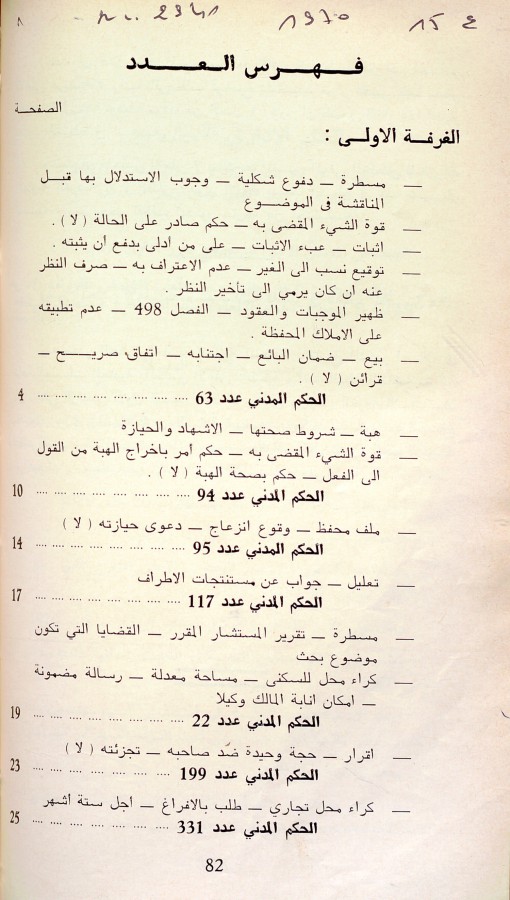 1970
15 ع
فهرس العدد
الصفحة
الغرفة الاولى :
— مسطرة — دفوع شكلية — وجوب الاستدلال بها قبل
المناقشة فى الموضوع
— قوة الشيء المقضى به — حكم صادر على الحالة ( لا ) .
— اثبات — عبء الاثبات — على من ادلى بدفع ان يثبته .
— توقيع نسب الى الغير — عدم الاعتراف به — صرف النظر
عنه ان كان يرمي الى تأخير النظر .
— ظهير الموجبات والعقود — الفصل 498 — عدم تطبيقه
على الاملاك المحفظة .
— بيع — ضمان البائع — اجتنابه — اتفاق صريح —
قرائن ( لا ) .
الحكم المدني عدد 63 .... .... .... .... .... .... .... 4
— هبة — شروط صحتها — الاشهاد والحيازة
— قوة الشيء المقضى به — حكم امر باخراج الهبة من القول
الى الفعل — حكم بصحة الهبة ( لا ) .
الحكم المدني عدد 94 .... .... .... .... .... .... .... 10
— ملف محفظ — وقوع انزعاج — دعوى حيازته ( لا )
الحكم المدني عدد 95 .... .... .... .... .... .... .... 14
— تعليل — جواب عن مستنتجات الاطراف
الحكم المدني عدد 117 .... .... .... .... .... .... .... 17
— مسطرة — تقرير المستشار المقرر — القضايا التي تكون
موضوع بحث
— كراء محل للسكنى — مساحة معدلة — رسالة مضمونة
— امكان انابة المالك وكيلا
الحكم المدني عدد 22 .... .... .... .... .... .... .... 19
— اقرار — حجة وحيدة ضد صاحبه — تجزئته ( لا )
الحكم المدني عدد 199 .... .... .... .... .... .... .... 23
— كراء محل تجاري — طلب بالافراغ — اجل ستة اشهر
الحكم المدني عدد 331 .... .... .... .... .... .... .... 25
82